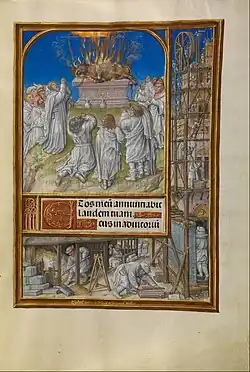 Et os meū annunciabit
laudem tuam.
eus in adiutoriū